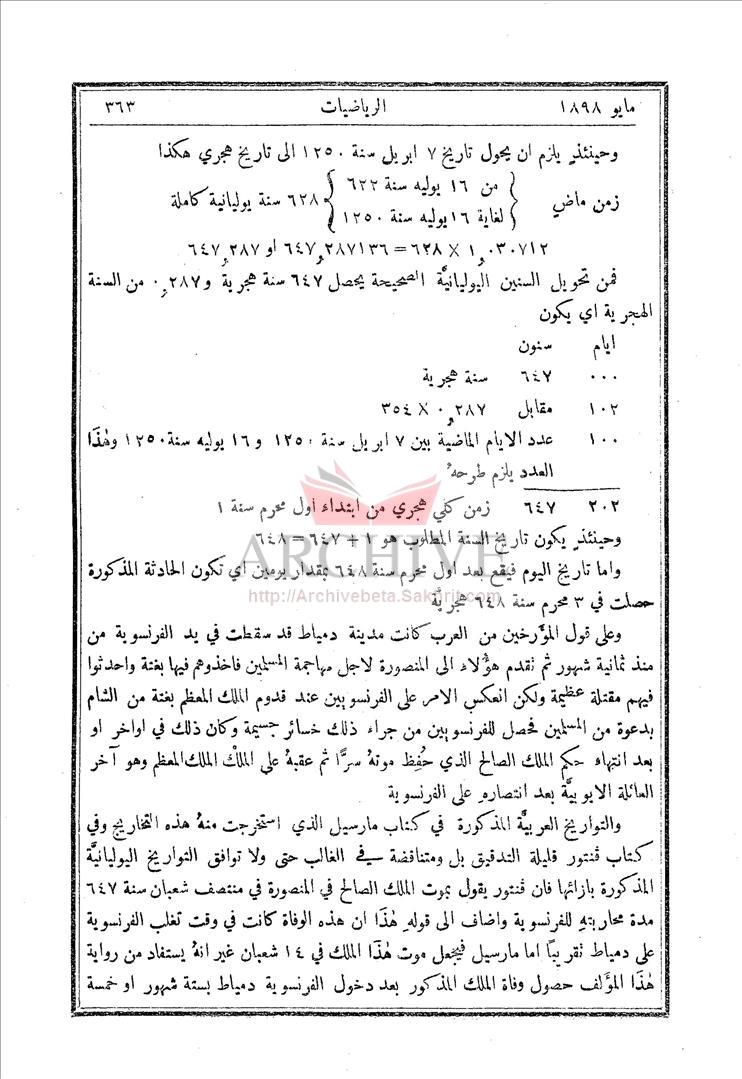 مايو ١٨٩٨ الرياضيات ٣٦٣
وحينئذٍ يلزم ان يحول تاريخ ٧ ابريل سنة ١٢٥٠ الى تاريخ هجري هكذا
زمن ماض { من ١٦ يوليه سنة ٦٢٢ لغاية ١٦ يوليه سنة ١٢٥٠ } ٦٢٨ سنة يوليانية كاملة
١٫٠٣٠٧١٢ × ٦٢٨ = ٦٤٧٫٢٨٧١٣٦ او ٦٤٧٫٢٨٧
فمن تحويل السنين اليوليانيَّة الصحيحة يحصل ٦٤٧ سنة هجرية و٠٫٢٨٧ من السنة
الهجرية اي يكون
ايام سنون
٠٠٠ ٦٤٧ سنة هجرية
١٠٢ مقابل ٠٫٢٨٧ × ٣٥٤
١٠٠ عدد الايام الماضية بين ٧ ابريل سنة ١٢٥٠ و١٦ يوليه سنة ١٢٥٠ وهٰذا
العدد يلزم طرحهُ
٢٠٢ ٦٤٧ زمن كلي هجري من ابتداء اول محرم سنة ١
وحينئذٍ يكون تاريخ السنة المطلوب هو ١ + ٦٤٧ = ٦٤٨
ARCHIVE
واما تاريخ اليوم فيقع بعد اول محرم سنة ٦٤٨ بمقدار يومين اي تكون الحادثة المذكورة
http://Archivebeta.Sakhrit.com
حصلت في ٣ محرم سنة ٦٤٨ هجريَّة
وعلى قول المؤرخين من العرب كانت مدينة دمياط قد سقطت في يد الفرنسوية من
منذ ثمانية شهور ثم تقدم هؤلاء الى المنصورة لاجل مهاجمة المسلمين فاخذوهم فيها بغتة واحدثوا
فيهم مقتلة عظيمة ولكن انعكس الامر على الفرنسويين عند قدوم الملك المعظم بغتة من الشام
بدعوة من المسلمين فحصل للفرنسويين من جراء ذلك خسائر جسيمة وكان ذلك في اواخر او
بعد انتهاء حكم الملك الصالح الذي حُفِظ موتهُ سرًّا ثم عقبهُ على الملْك الملك المعظم وهو آخر
العائلة الايوبيَّة بعد انتصارهِ على الفرنسوية
والتواريخ العربيَّة المذكورة في كتاب مارسيل الذي استخرجت منهُ هذه التخاريج وفي
كتاب ڤنتور قليلة التدقيق بل ومتناقضة في الغالب حتى ولا توافق التواريخ اليوليانيَّة
المذكورة بازائها فان ڤنتور يقول بموت الملك الصالح في المنصورة في منتصف شعبان سنة ٦٤٧
مدة محاربتهِ للفرنسوية واضاف الى قولهِ هٰذا ان هذه الوفاة كانت في وقت تغلب الفرنسوية
على دمياط تقريبًا اما مارسيل فيجعل موت هٰذا الملك في ١٤ شعبان غير انهُ يستفاد من رواية
هٰذا المؤلف حصول وفاة الملك المذكور بعد دخول الفرنسوية دمياط بستة شهور او خمسة